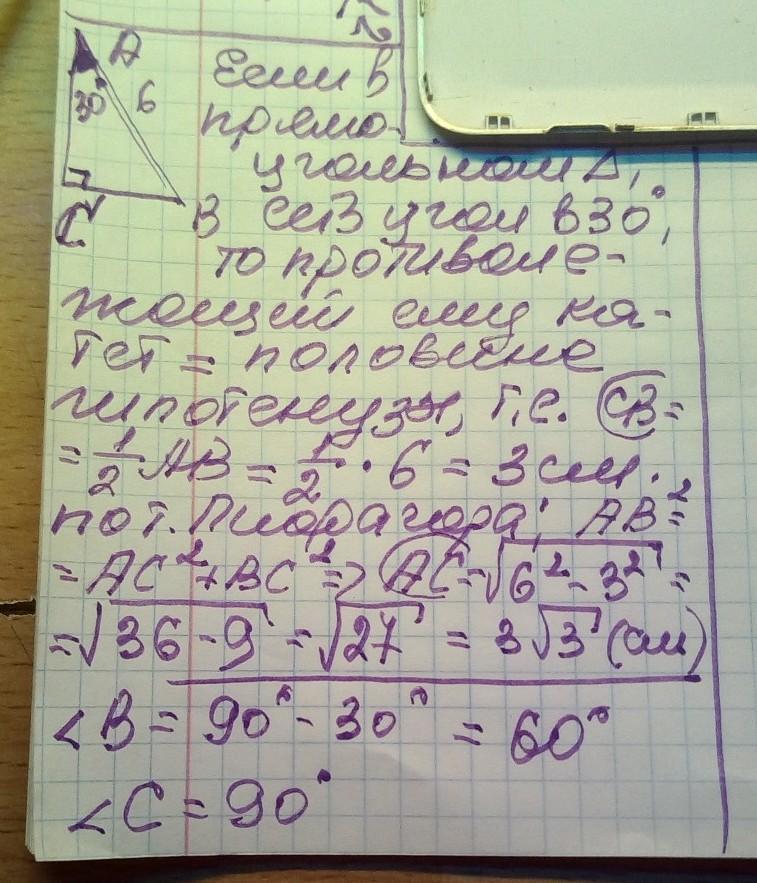 A
30°
6
C
B
Если в
прямо-
угольном Δ,
есть угол в 30°,
то противоле-
жащий ему ка-
тет = половине
гипотенузы, т.е. CB =
= 1/2 AB = 1/2 · 6 = 3 см.
по т. Пифагора: AB² =
= AC² + BC² => AC = √6² - 3² =
= √36 - 9 = √27 = 3√3 (см)
<B = 90° - 30° = 60°
<C = 90°